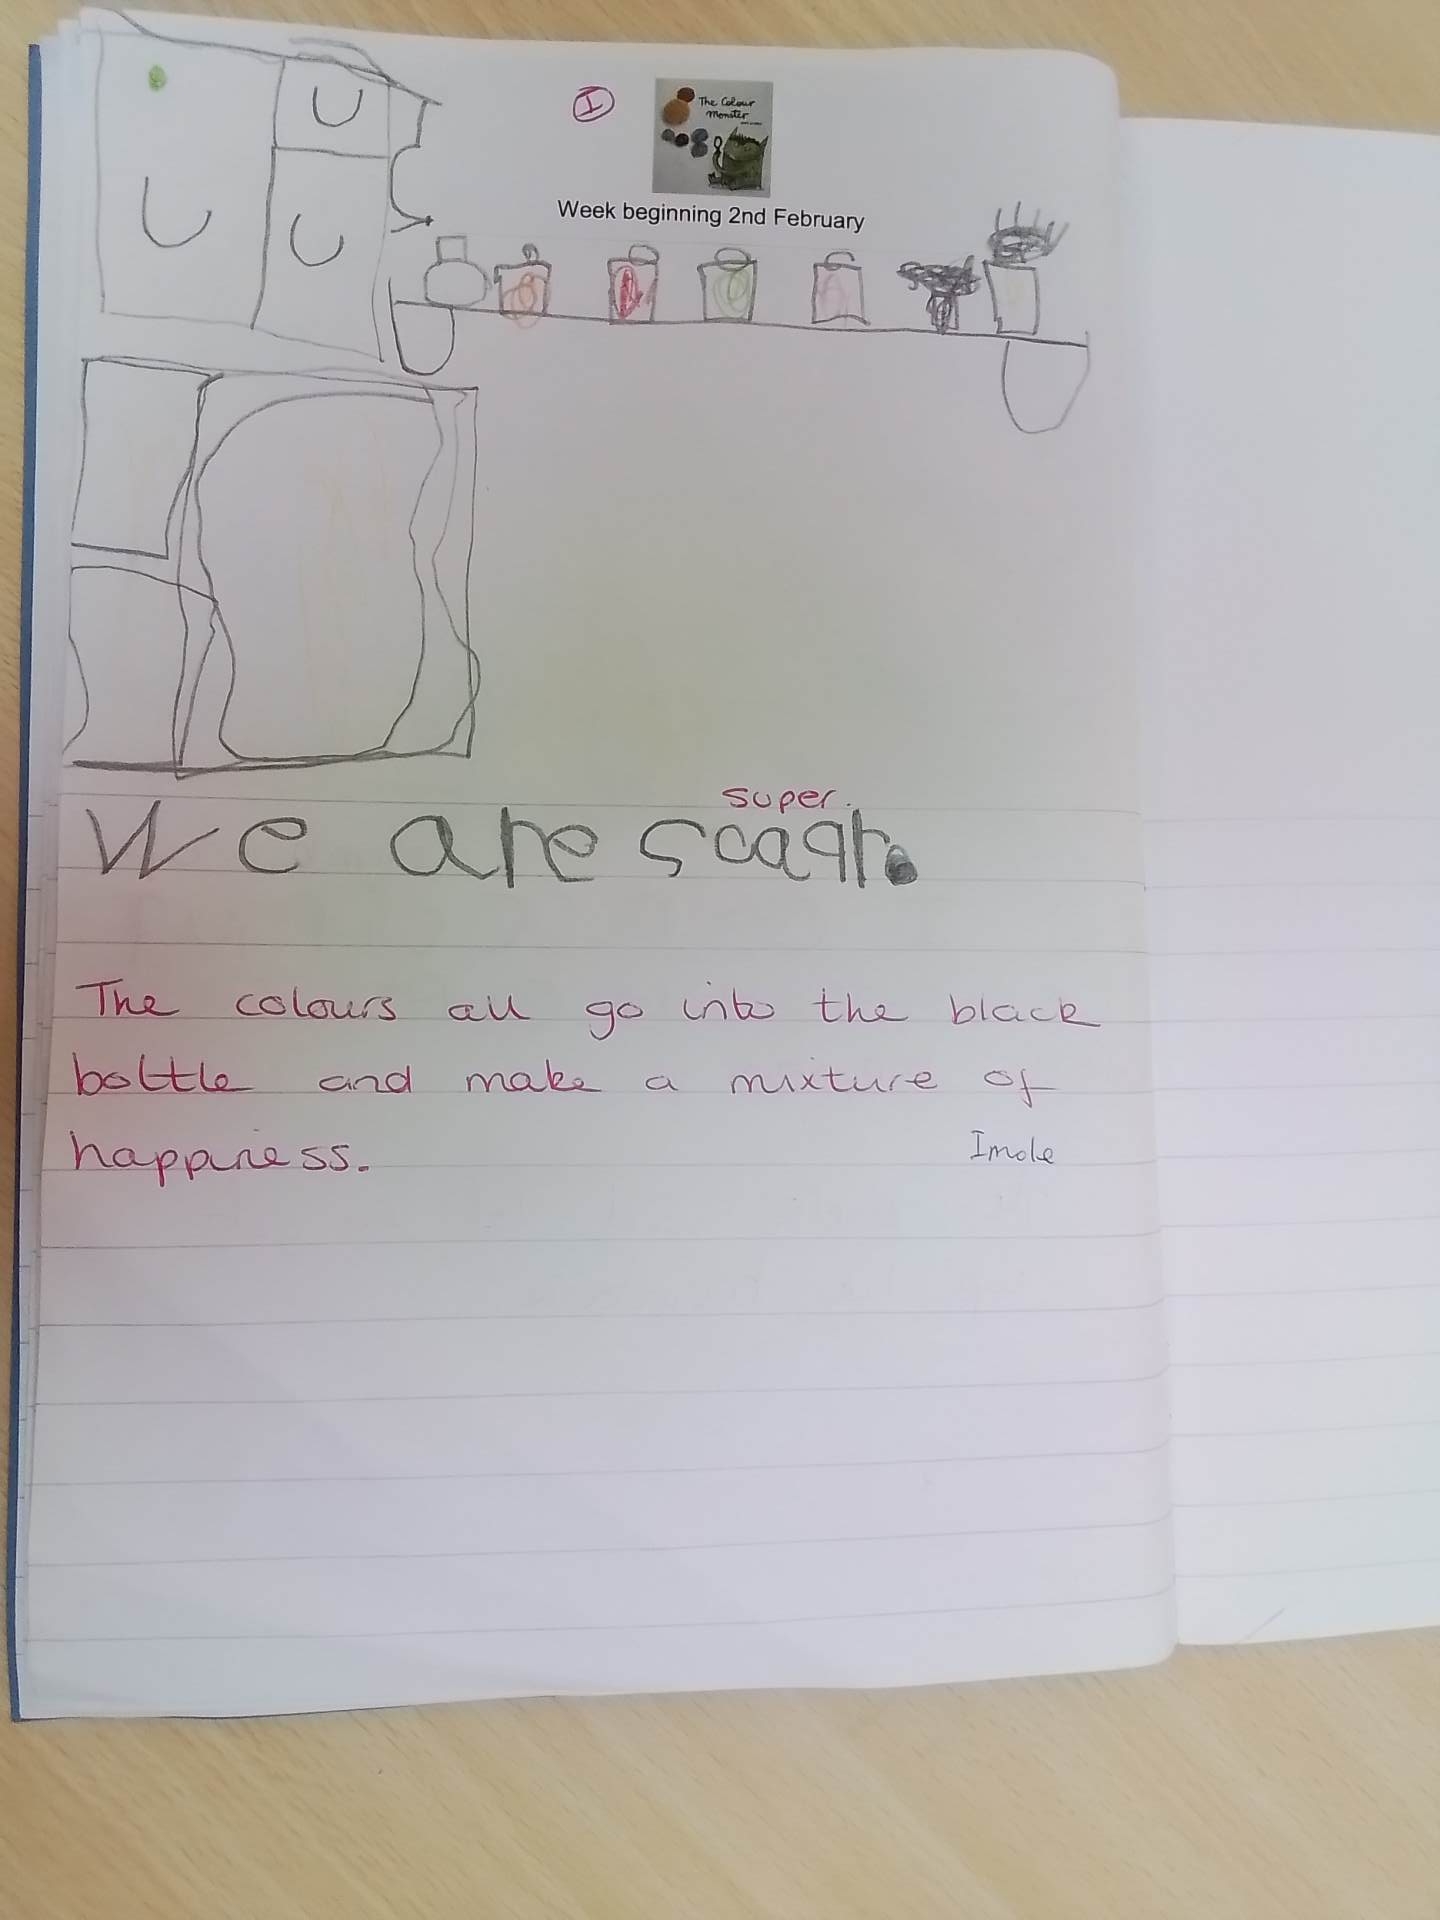 I
The Colour
Monster
Week beginning 2nd February
super.
We are scaqr.
The colours all go into the black
bottle and make a mixture of
happiness.
Imole